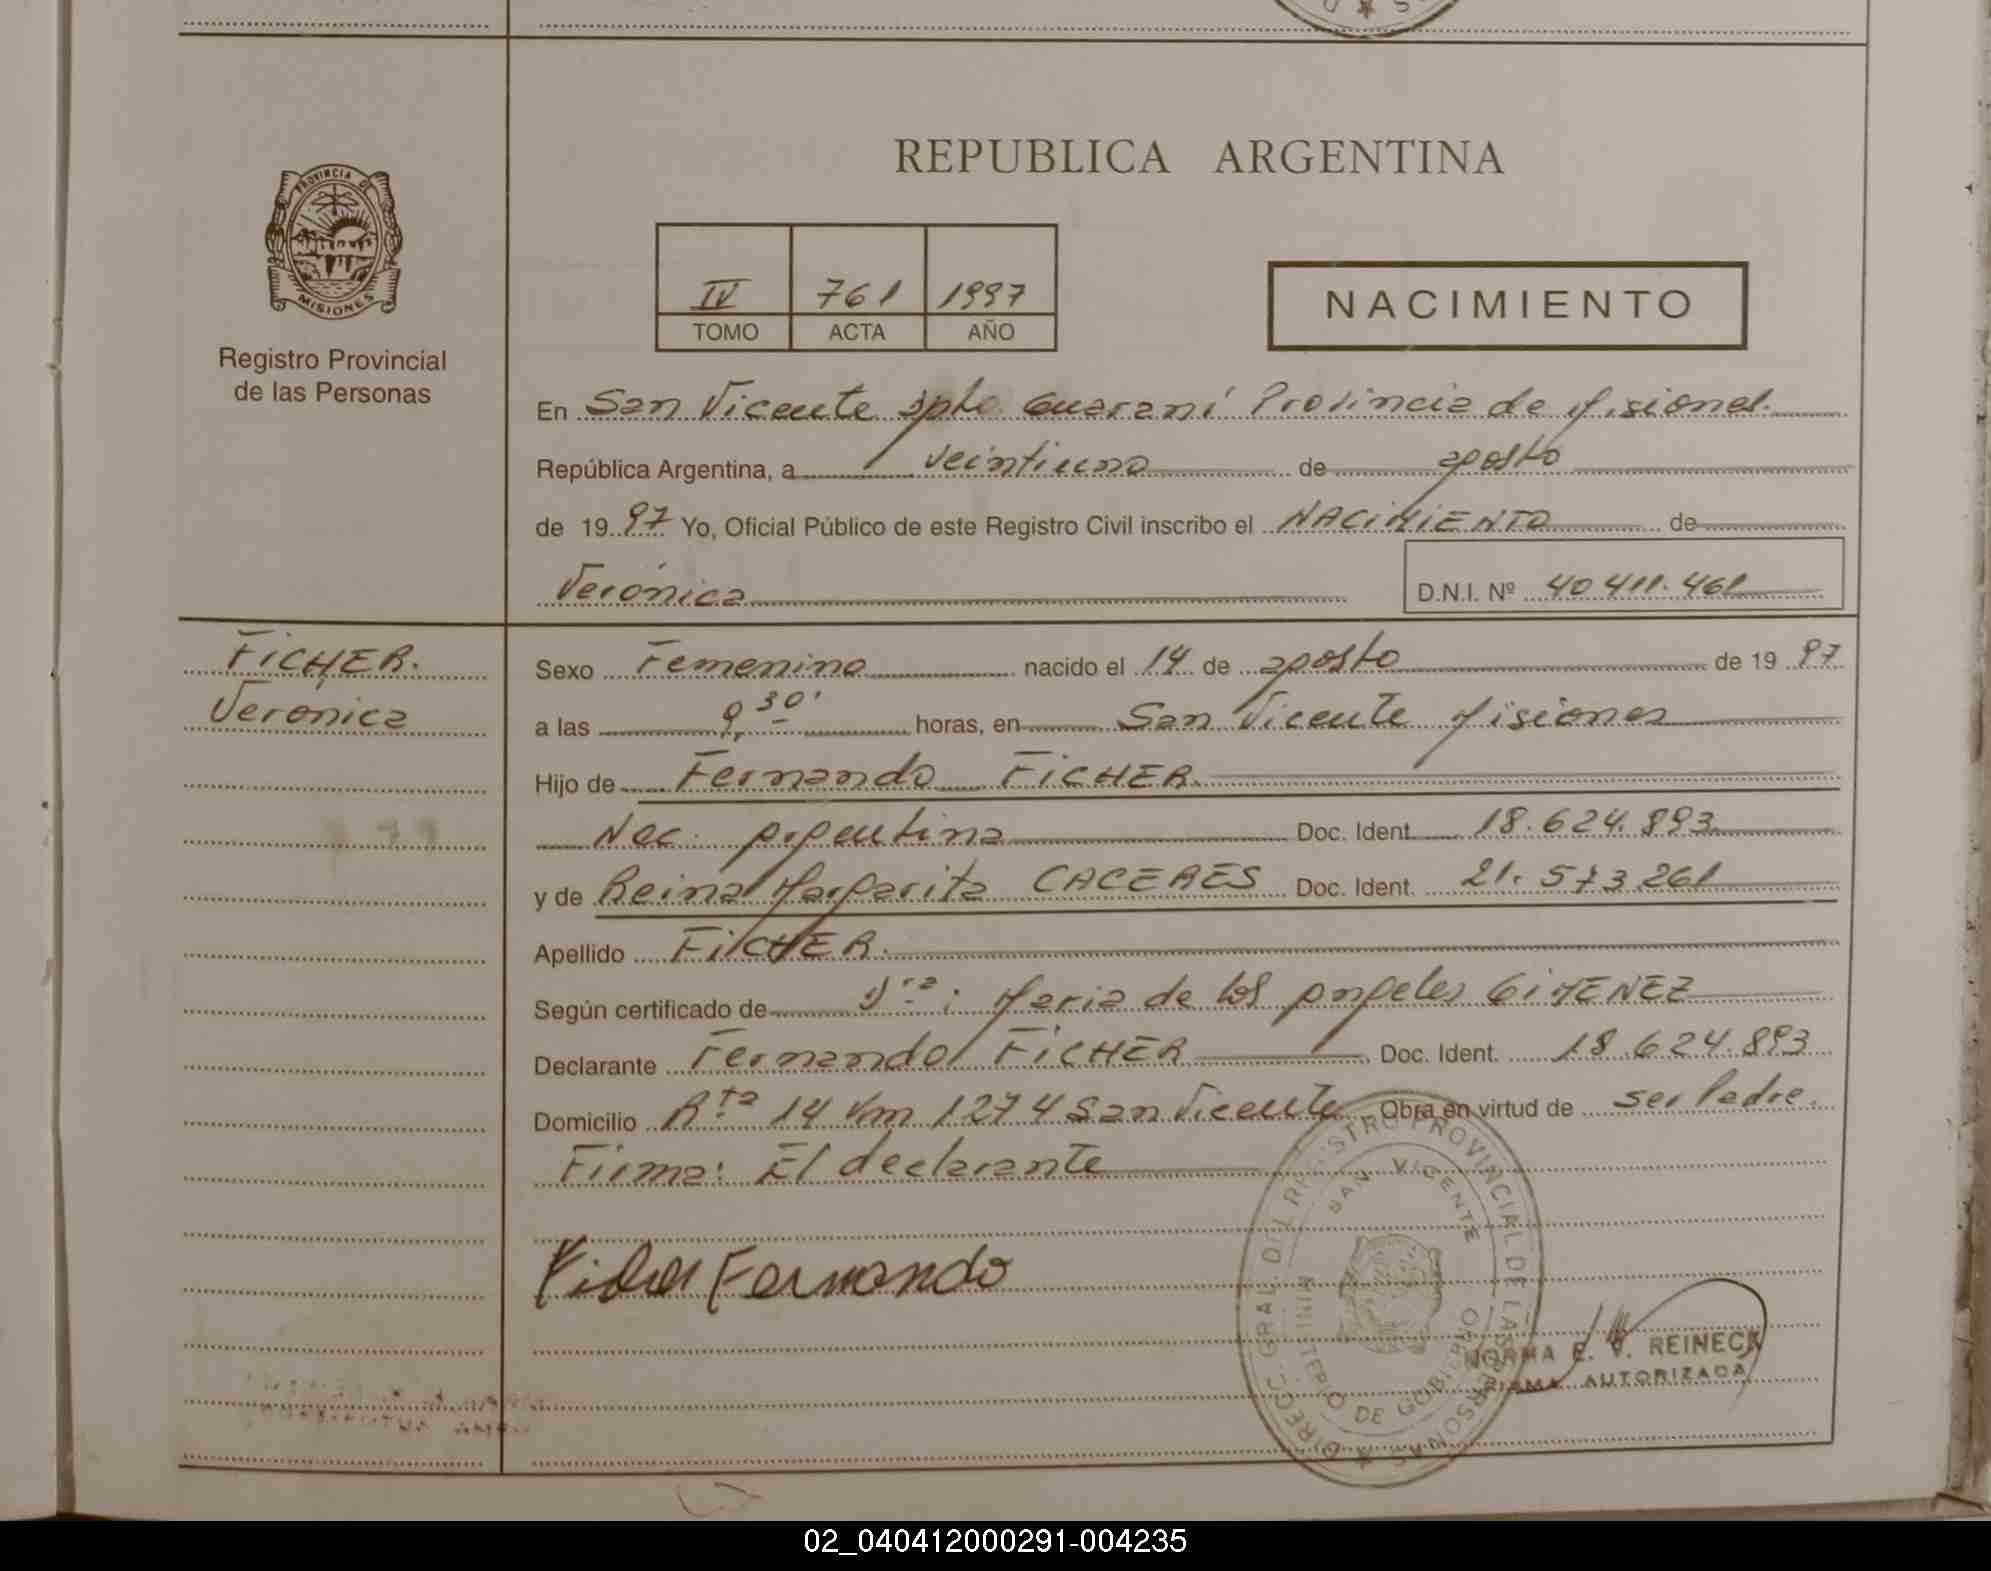 PROVINCIA DE
MISIONES
Registro Provincial
de las Personas
REPUBLICA ARGENTINA
IV 761 1997
TOMO ACTA AÑO
NACIMIENTO
En San Vicente Dpto Guaraní Provincia de Misiones.
República Argentina, a veintiuno de agosto
de 1997 Yo, Oficial Público de este Registro Civil inscribo el NACIMIENTO de
Verónica D.N.I. Nº 40411.461
FICHER.
Verónica
Sexo Femenino nacido el 14 de agosto de 1997
a las 9,30' horas, en San Vicente Misiones
Hijo de Fernando FICHER.
Nac. Argentina Doc. Ident. 18.624.893
y de Reina Margarita CACERES Doc. Ident. 21.573.261
Apellido FICHER.
Según certificado de Dra: Maria de los Angeles GIMENEZ
Declarante Fernando FICHER Doc. Ident. 18.624.893
Domicilio Rta 14 Km 1274 San Vicente Obra en virtud de ser Padre.
Firma: El declarante
Fernando
DIREC. GRAL. DEL REGISTRO PROVINCIAL DE LAS PERSONAS
SAN VICENTE
MINISTERIO DE GOBIERNO
NORMA E. V. REINECK
FIRMA AUTORIZADA
02_040412000291-004235